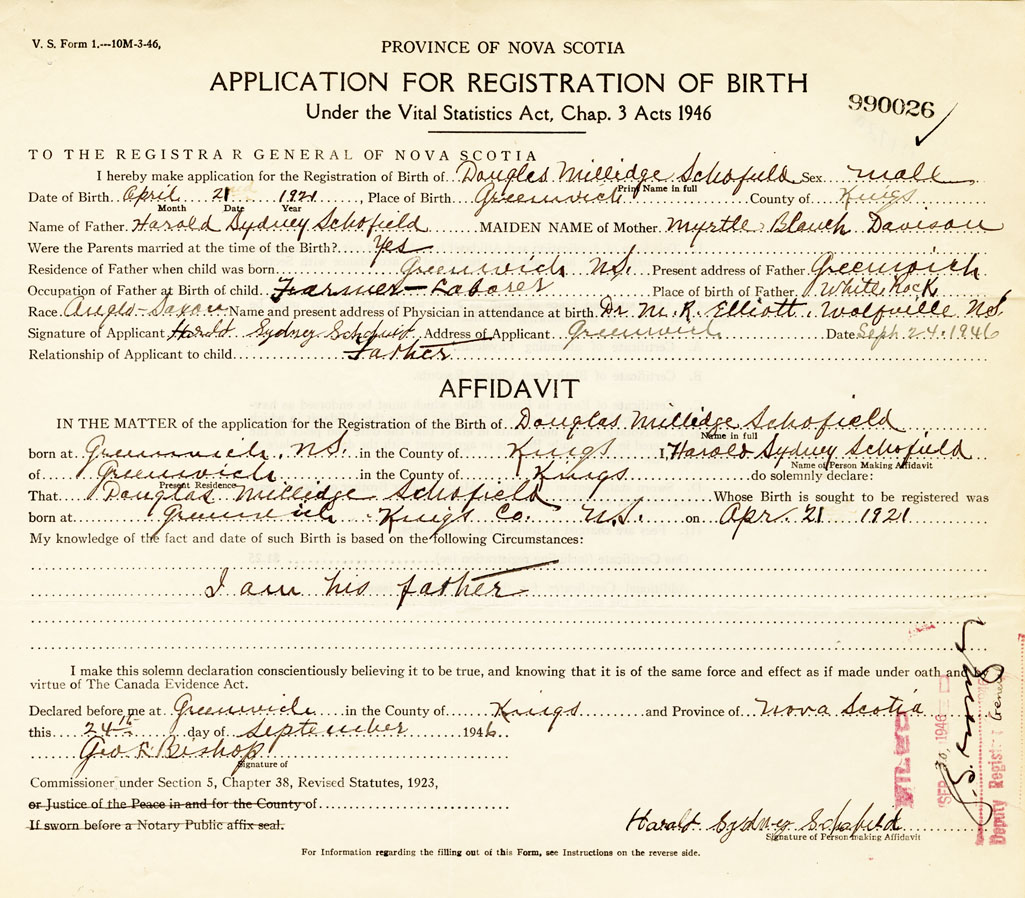 V. S. Form 1.---10M-3-46,
PROVINCE OF NOVA SCOTIA
APPLICATION FOR REGISTRATION OF BIRTH
Under the Vital Statistics Act, Chap. 3 Acts 1946
990026
TO THE REGISTRAR GENERAL OF NOVA SCOTIA
I hereby make application for the Registration of Birth of Douglas Millidge Schofield Sex male
Print Name in full
Date of Birth April 21 1921, Place of Birth Greenwich County of Kings
Month Date Year
Name of Father Harold Sydney Schofield MAIDEN NAME of Mother Myrtle Blanch Davison
Were the Parents married at the time of the Birth? Yes
Residence of Father when child was born Greenwich N.S. Present address of Father Greenwich
Occupation of Father at Birth of child Farmer - Laborer Place of birth of Father White Rock
Race Anglo-Saxon Name and present address of Physician in attendance at birth Dr. M. R. Elliott, Wolfville N.S.
Signature of Applicant Harold Sydney Schofield Address of Applicant Greenwich Date Sept. 24, 1946
Relationship of Applicant to child Father
AFFIDAVIT
IN THE MATTER of the application for the Registration of the Birth of Douglas Millidge Schofield
Name in full
born at Greenwich, N.S. in the County of Kings I, Harold Sydney Schofield
Name of Person Making Affidavit
of Greenwich in the County of Kings do solemnly declare:
Present Residence
That Douglas Millidge Schofield Whose Birth is sought to be registered was
born at Greenwich Kings Co. N.S. on Apr. 21 1921
My knowledge of the fact and date of such Birth is based on the following Circumstances:
I am his father
I make this solemn declaration conscientiously believing it to be true, and knowing that it is of the same force and effect as if made under oath and by
virtue of The Canada Evidence Act.
Declared before me at Greenwich in the County of Kings and Province of Nova Scotia
this 24th day of September 1946
Geo R Bishop
Signature of
Commissioner under Section 5, Chapter 38, Revised Statutes, 1923,
or Justice of the Peace in and for the County of
If sworn before a Notary Public affix seal.
Harold Sydney Schofield
Signature of Person making Affidavit
SEP 30, 1946
Deputy Registrar General
For Information regarding the filling out of this Form, see Instructions on the reverse side.